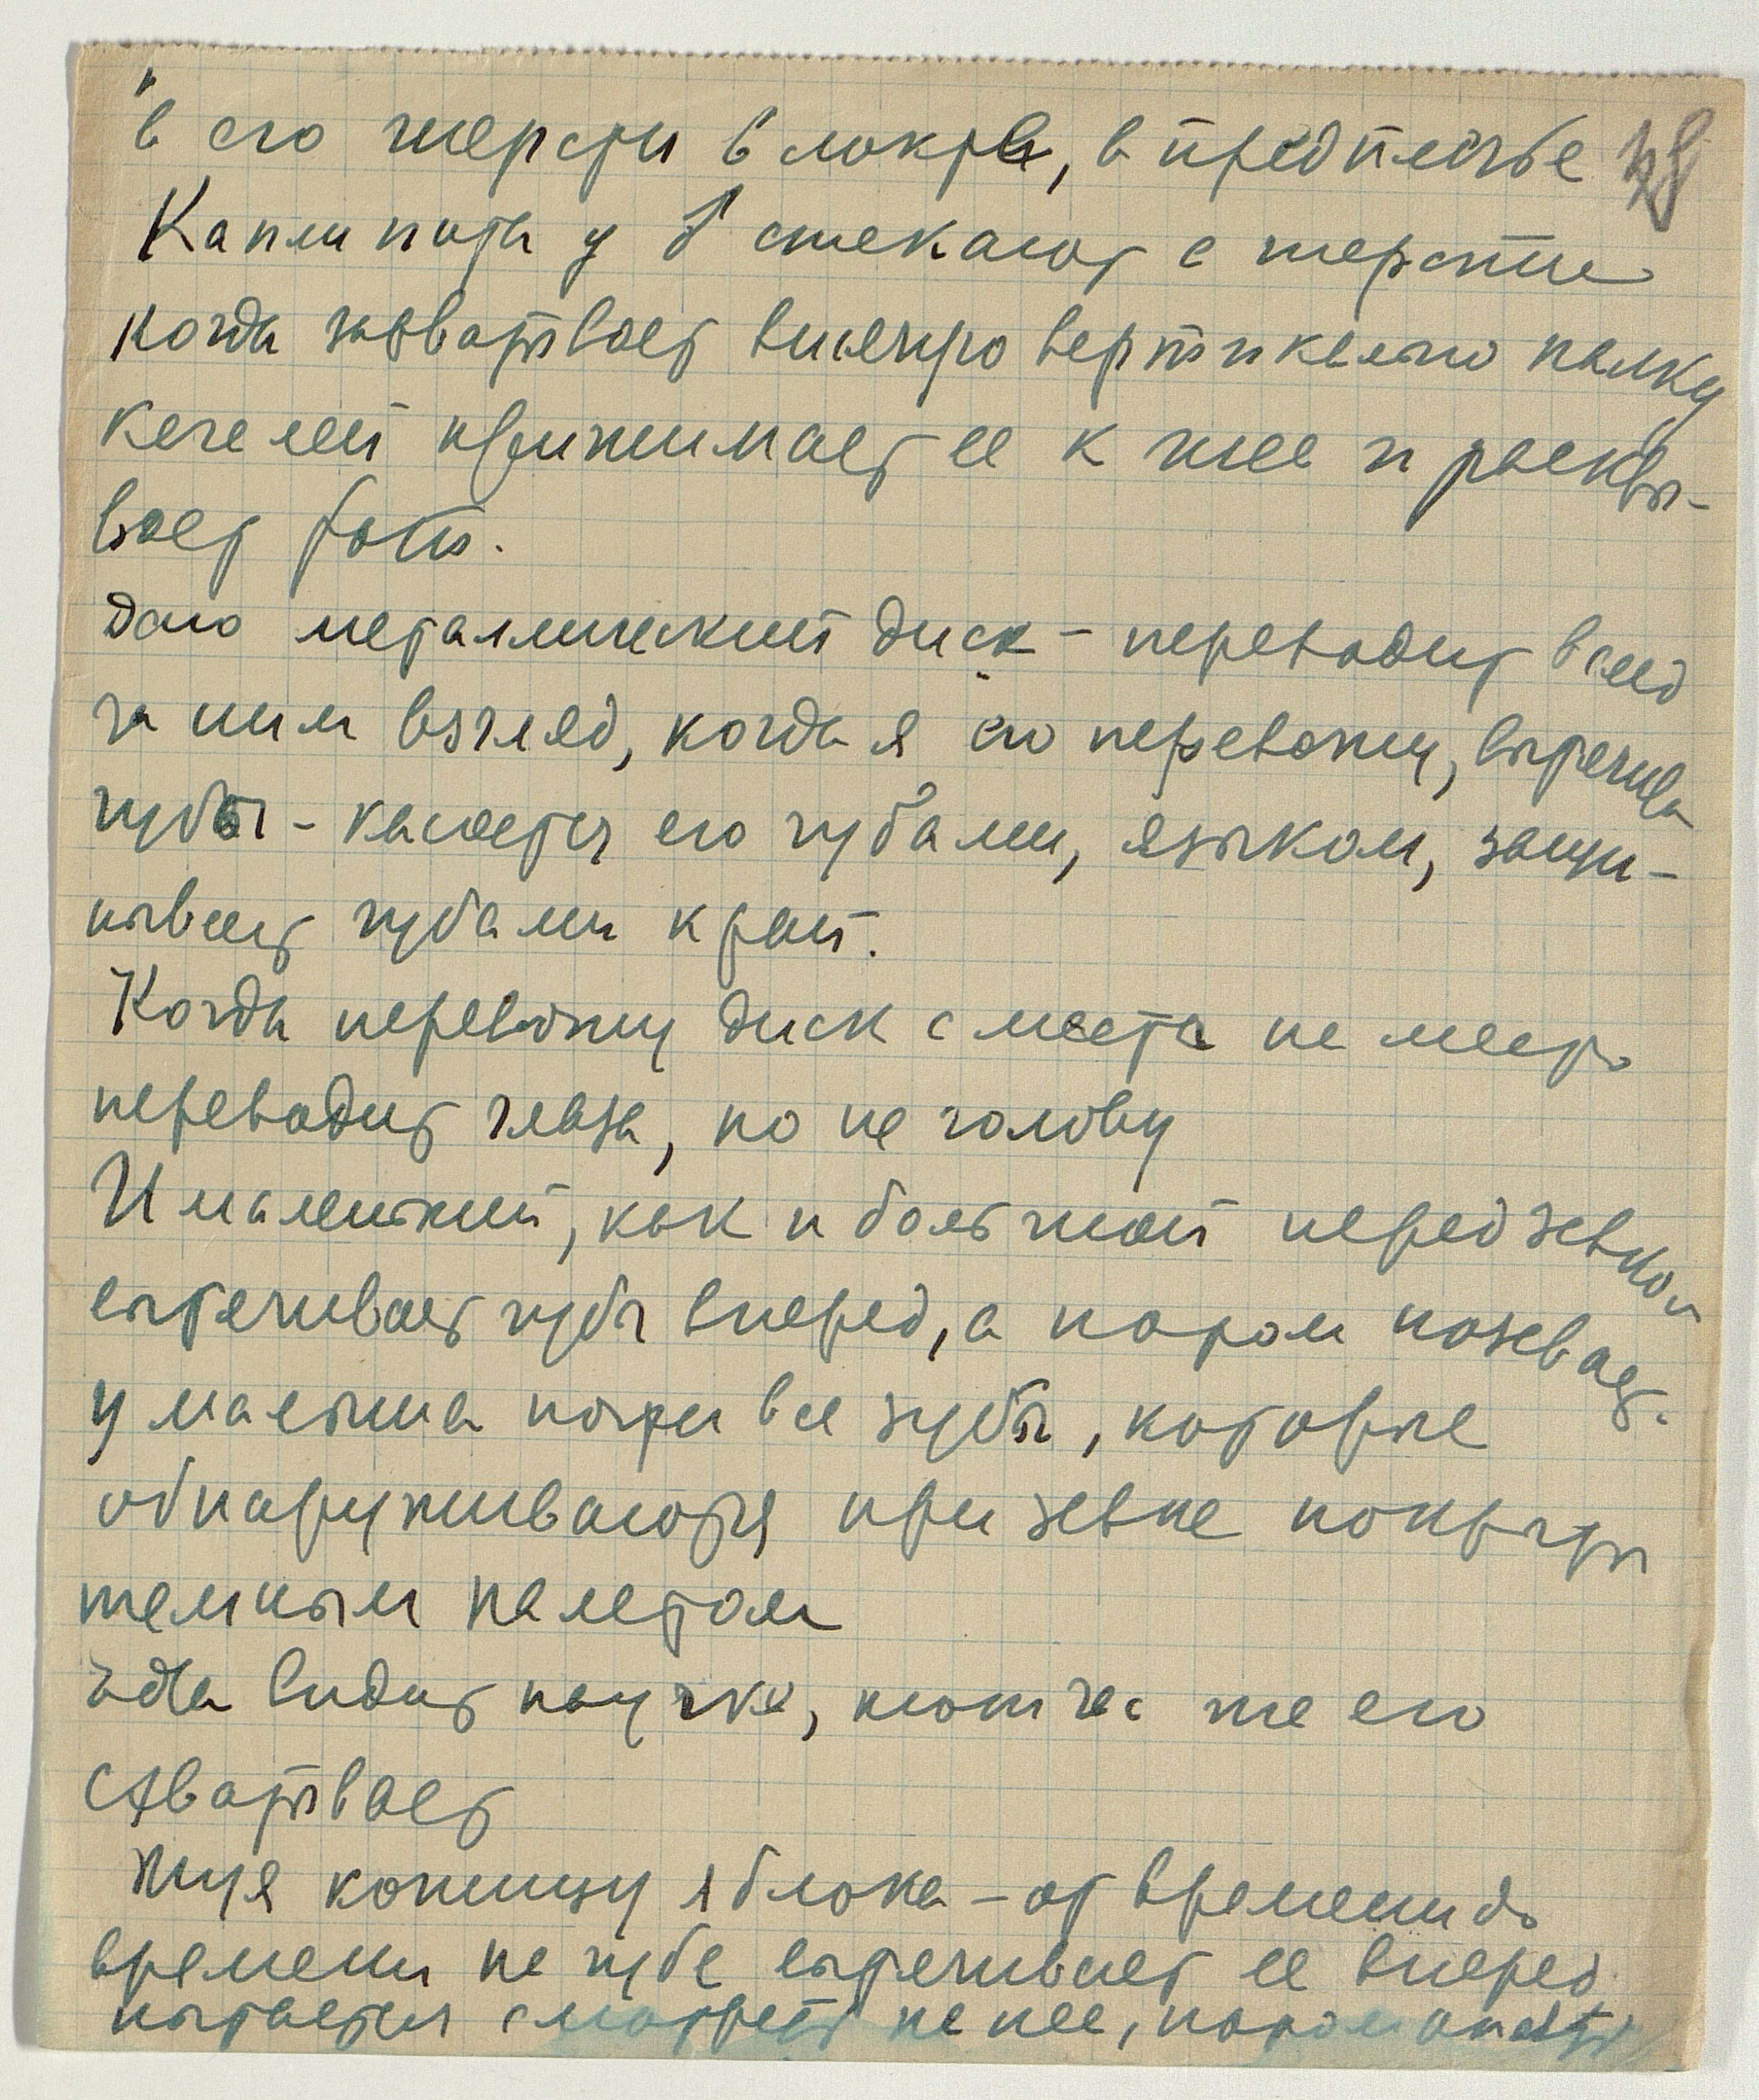 в его шерсти в локте, в предплечье
Капли пота у б стекают с шерсти
когда захватывает висящую вертикально палку
качелей прижимает ее к шее и раскры-
вает рот.
Даю металлический диск – переводит вслед
за ним взгляд, когда я его перевожу, вытягива
губы – касается его губами, языком, защи-
пывает губами край.
Когда перевожу диск с места на место
переводит глаза, но не голову
И маленький, как и большой перед зевкой
вытягивает губы вперед, а потом позевает.
у малыша почти все зубы, которые
обнаруживаются при зевке покрыты
темным налетом
Едва видит паучка, тотчас же его
схватывает
Жуя кожицу яблока – от времени до
времени на губе вытягивает ее вперед
пытается смотреть на нее, потом опять